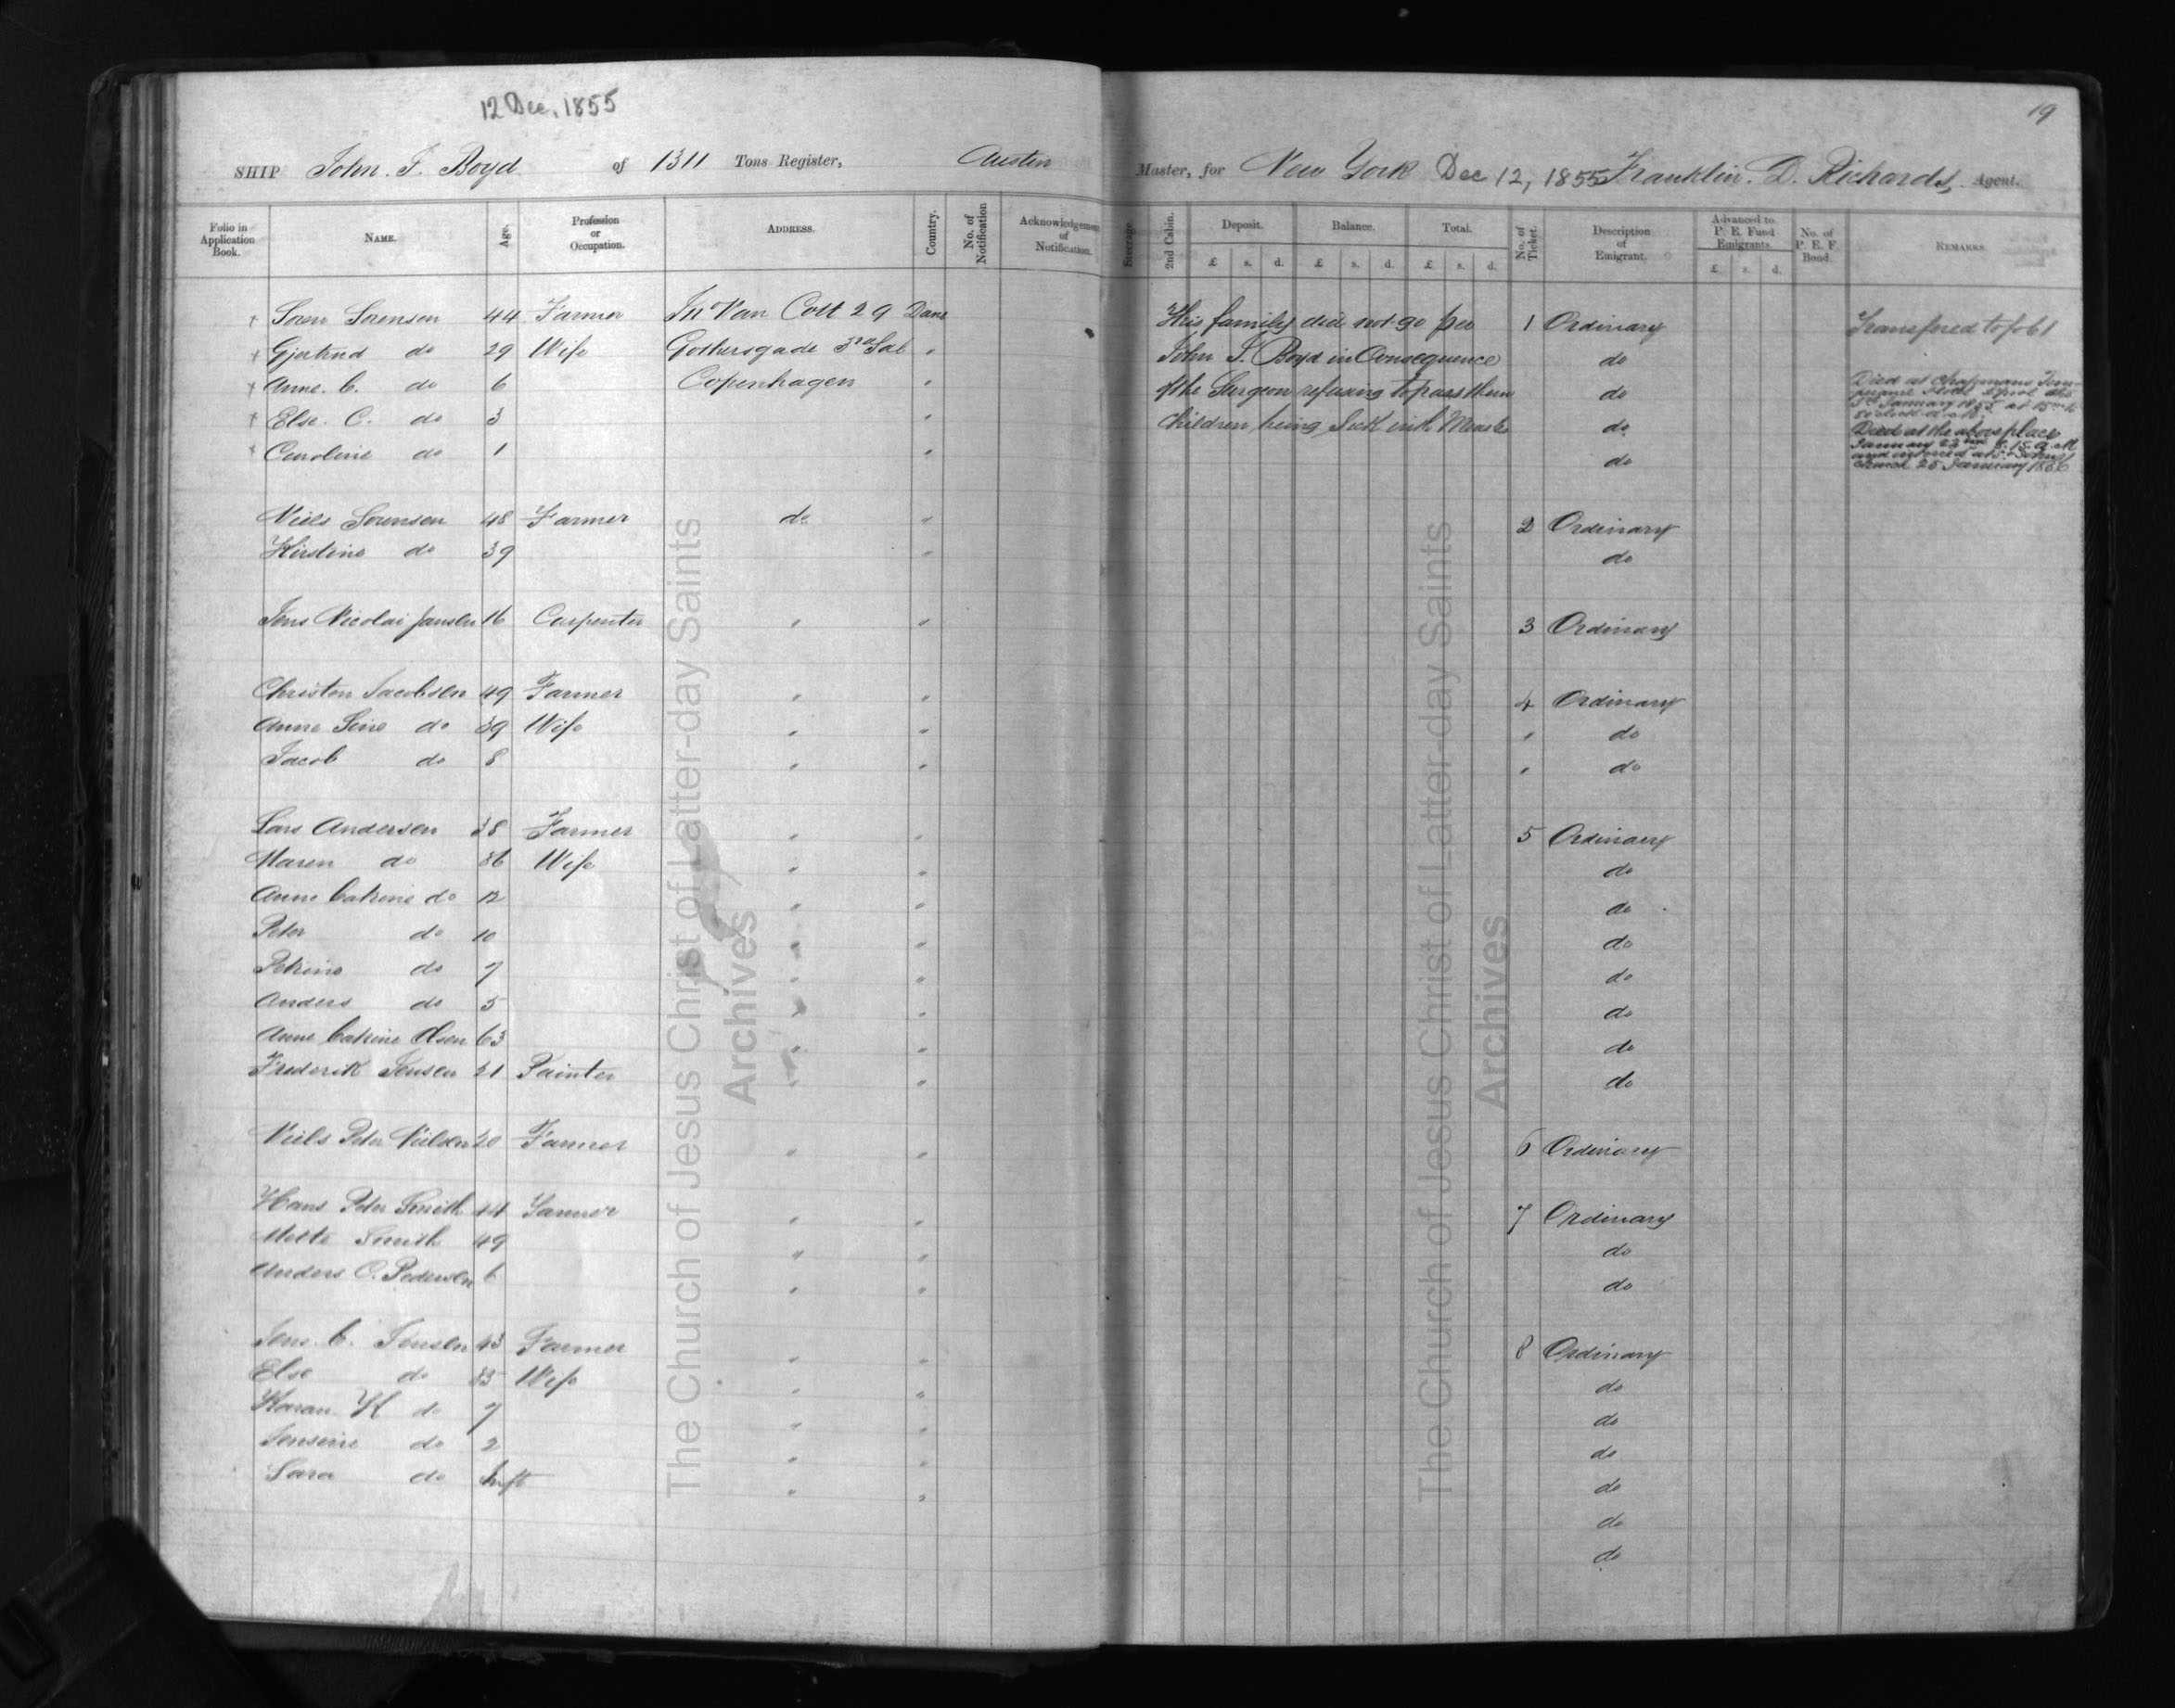 12 Dec, 1855
19
SHIP John. J. Boyd of 1311 Tons Register, Austin Master, for New York Dec 12, 1855 Franklin. D. Richards, Agent.
Folio in Application Book. NAME. Age. Profession or Occupation. ADDRESS. Country. No. of Notification Acknowledgement of Notification. Steerage. 2nd Cabin. Deposit. Balance. Total. No. of Ticket. Description of Emigrant. Advanced to P. E. Fund Emigrants. No. of P. E. F. Bond. REMARKS.
£ s. d. £ s. d. £ s. d. £ s. d.
Soren Sorensen 44 Farmer Cort 29 Dane His family did not go per 1 Ordinary Transfered to fol 1
Gjertrud do 29 Wife Gothersgade 3rd Sal " John J. Boyd in Consequence do
Anne. C. do 6 Copenhagen " of the Surgeon refusing to pass them do Died at Chapmans
Else. C. do 3 " Children being Sick with do Died at the above place
January 22nd
Church 25 January 1856
Caroline do 1 " do
Niels Sorensen 48 Farmer do " 2 Ordinary
Kirstine do 39 " do
Jens Nicolai Jansen 16 Carpenter " " 3 Ordinary
Christen Jacobsen 49 Farmer " " 4 Ordinary
Anne do 39 Wife " " " do
Jacob do 8 " " " do
Lars Andersen 38 Farmer " " 5 Ordinary
Maren do 36 Wife " " do
Anne Catrine do 12 " " do
Peter do 10 " " do
Petrine do 7 " " do
Anders do 5 " " do
Anne Catrine Olsen 63 " " do
Frederik Jensen 21 Painter " " do
Niels Peter Nielsen 20 Farmer " " 6 Ordinary
Hans Peter Smith 44 " " 7 Ordinary
Mette Smith 49 " " do
Anders C. Pedersen 6 " " do
Jens. C. Jensen 43 Farmer " " 8 Ordinary
Else do 35 Wife " " do
Karan K do 7 " " do
Jensine do 2 " " do
Sara do Inft " " do
do
do
The Church of Jesus Christ of Latter-day Saints
Archives
The Church of Jesus Christ of Latter-day Saints
Archives